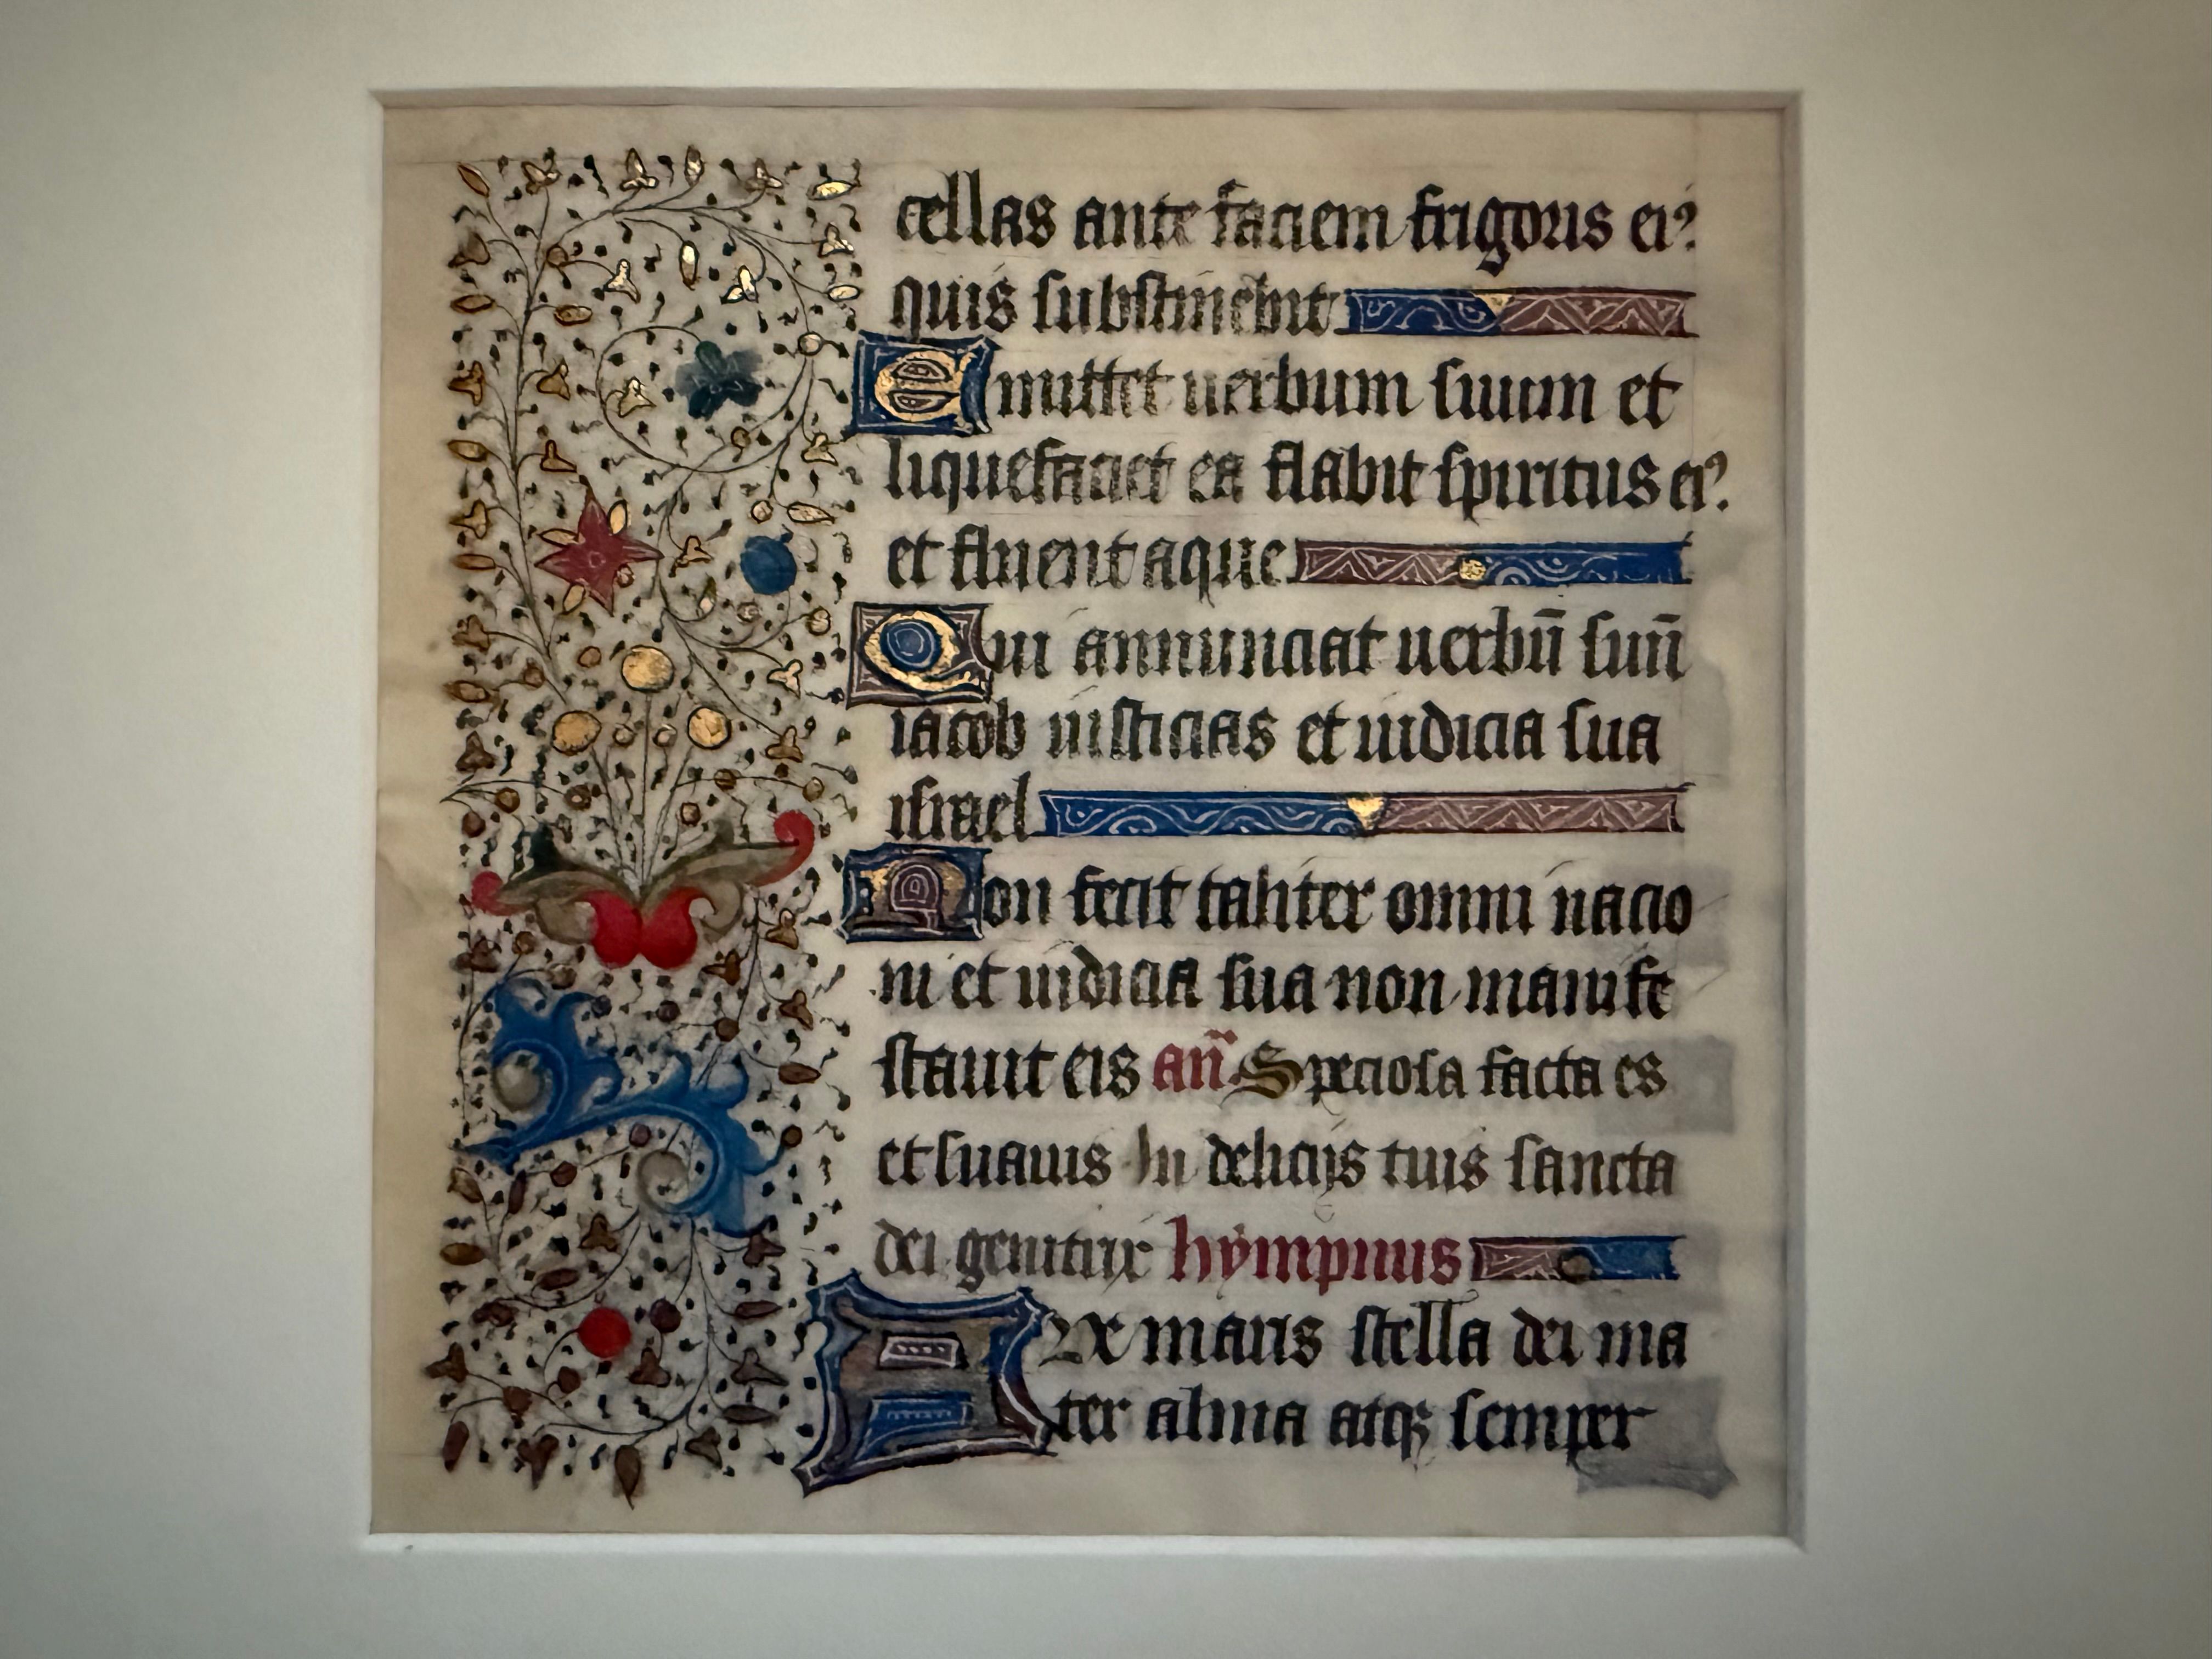 cellas ante faciem frigoris ei⁹.
quis substinebit
Emittet uerbum suum et
liquefaciet ea flabit spiritus ei⁹.
et fluent aque
Qui annunciat uerbū suū
iacob iusticias et iudicia sua
israel
Non fecit taliter omni nacio
ni et iudicia sua non manife
stauit eis an̄ Speciosa facta es
et suauis In delicijs tuis sancta
dei genitrix hympnus
Aue maris stella dei ma
ter alma atqꝫ semper